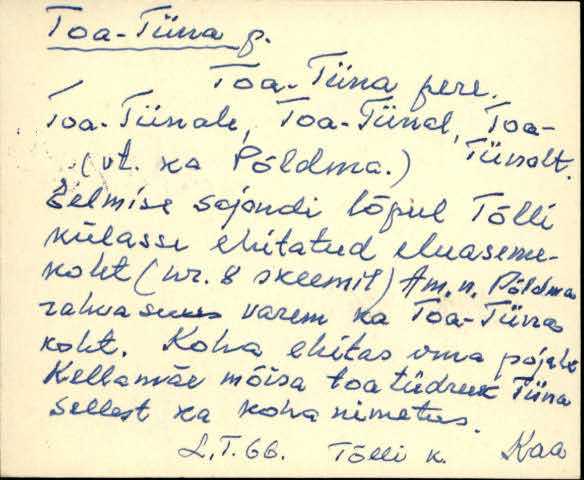 Toa-Tiina p.
Toa-Tiina pere.
Toa-Tiinale, Toa-Tiinal, Toa-
Tiinalt.
(vt. ka Põldma.)
Eelmise sajandi lõpul Tõlli
külasse ehitatud eluaseme-
koht (nr. 8 skeemil) Am.n. Põldma
rahvasuus varem ka Toa-Tiina
koht. Koha ehitas oma pojale
Kellamäe mõisa toatüdruk Tiina
sellest ka koha nimetus.
L.T.66. Tõlli k. Kaa